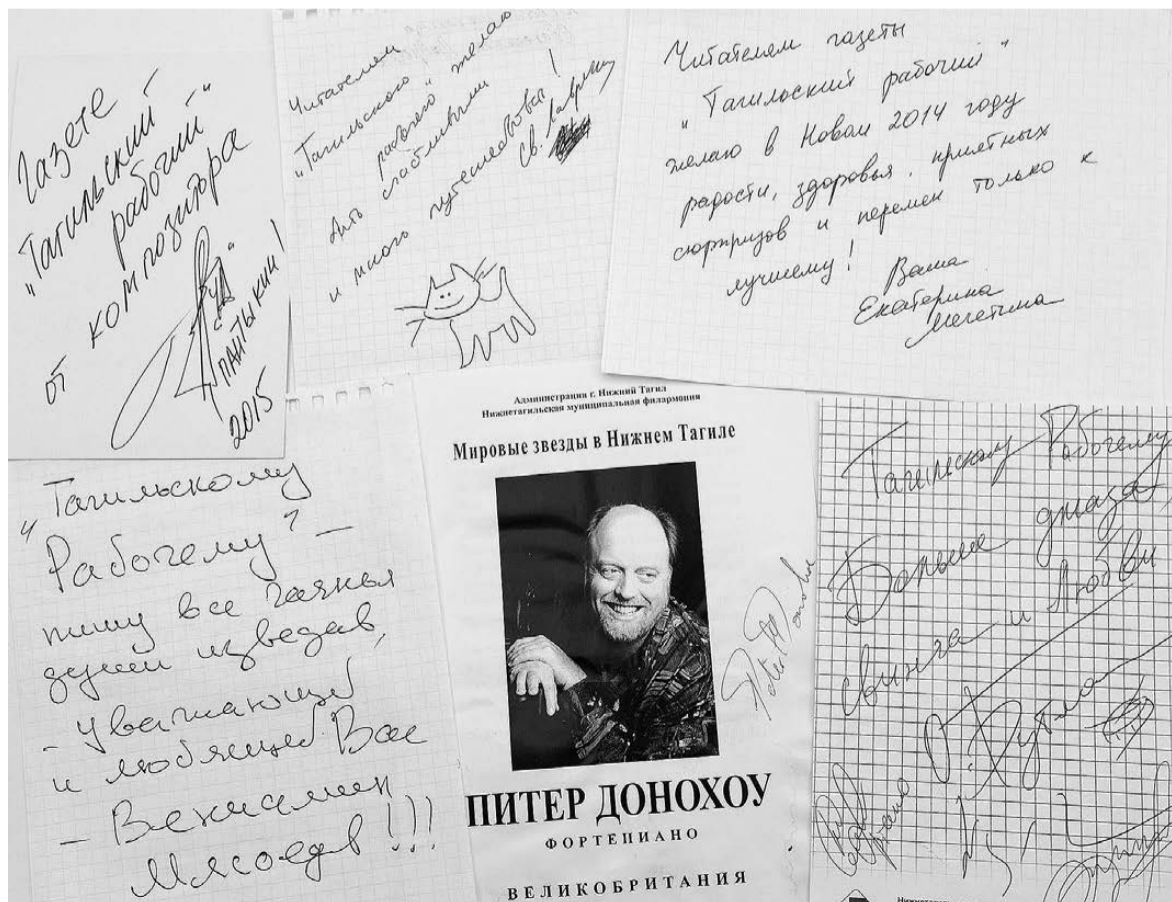 Газете
"Тагильский
рабочий"
от композитора
Пантыкин!
2015
Читателям
"Тагильского
рабочего" желаю
быть счастливыми
и много путешествовать!
Св.
Читателям газеты
"Тагильский рабочий"
желаю в Новом 2014 году
радости, здоровья, приятных
сюрпризов и перемен только к
лучшему!
Ваша
Екатерина
Мечетина
"Тагильскому
Рабочему" –
пишу все
души изведав,
- Уважающий
и любящий Вас
- Вениамин
Мясоедов!!!
Администрация г. Нижний Тагил
Нижнетагильская муниципальная филармония
Мировые звезды в Нижнем Тагиле
Peter Donohoe
ПИТЕР ДОНОХОУ
ФОРТЕПИАНО
ВЕЛИКОБРИТАНИЯ
Тагильскому Рабочему
Больше джаза,
свинга и Любви